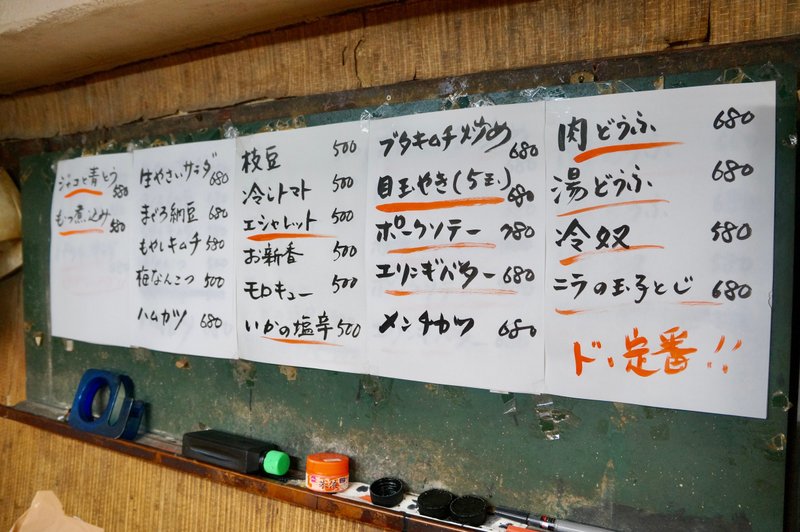 肉どうふ 680
湯どうふ 680
冷奴 580
ニラの玉子とじ 680
ド・定番!!
ブタキムチ炒め 680
目玉やき(5玉) 680
ポークソテー 780
エリンギバター 680
メンチカツ 680
枝豆 500
冷しトマト 500
エシャレット 500
お新香 500
モロキュー 500
いかの塩辛 500
生やさいサラダ 680
まぐろ納豆 680
もやしキムチ 580
梅なんこつ 500
ハムカツ 680
ジャコと青とう 580
もつ煮込み 580